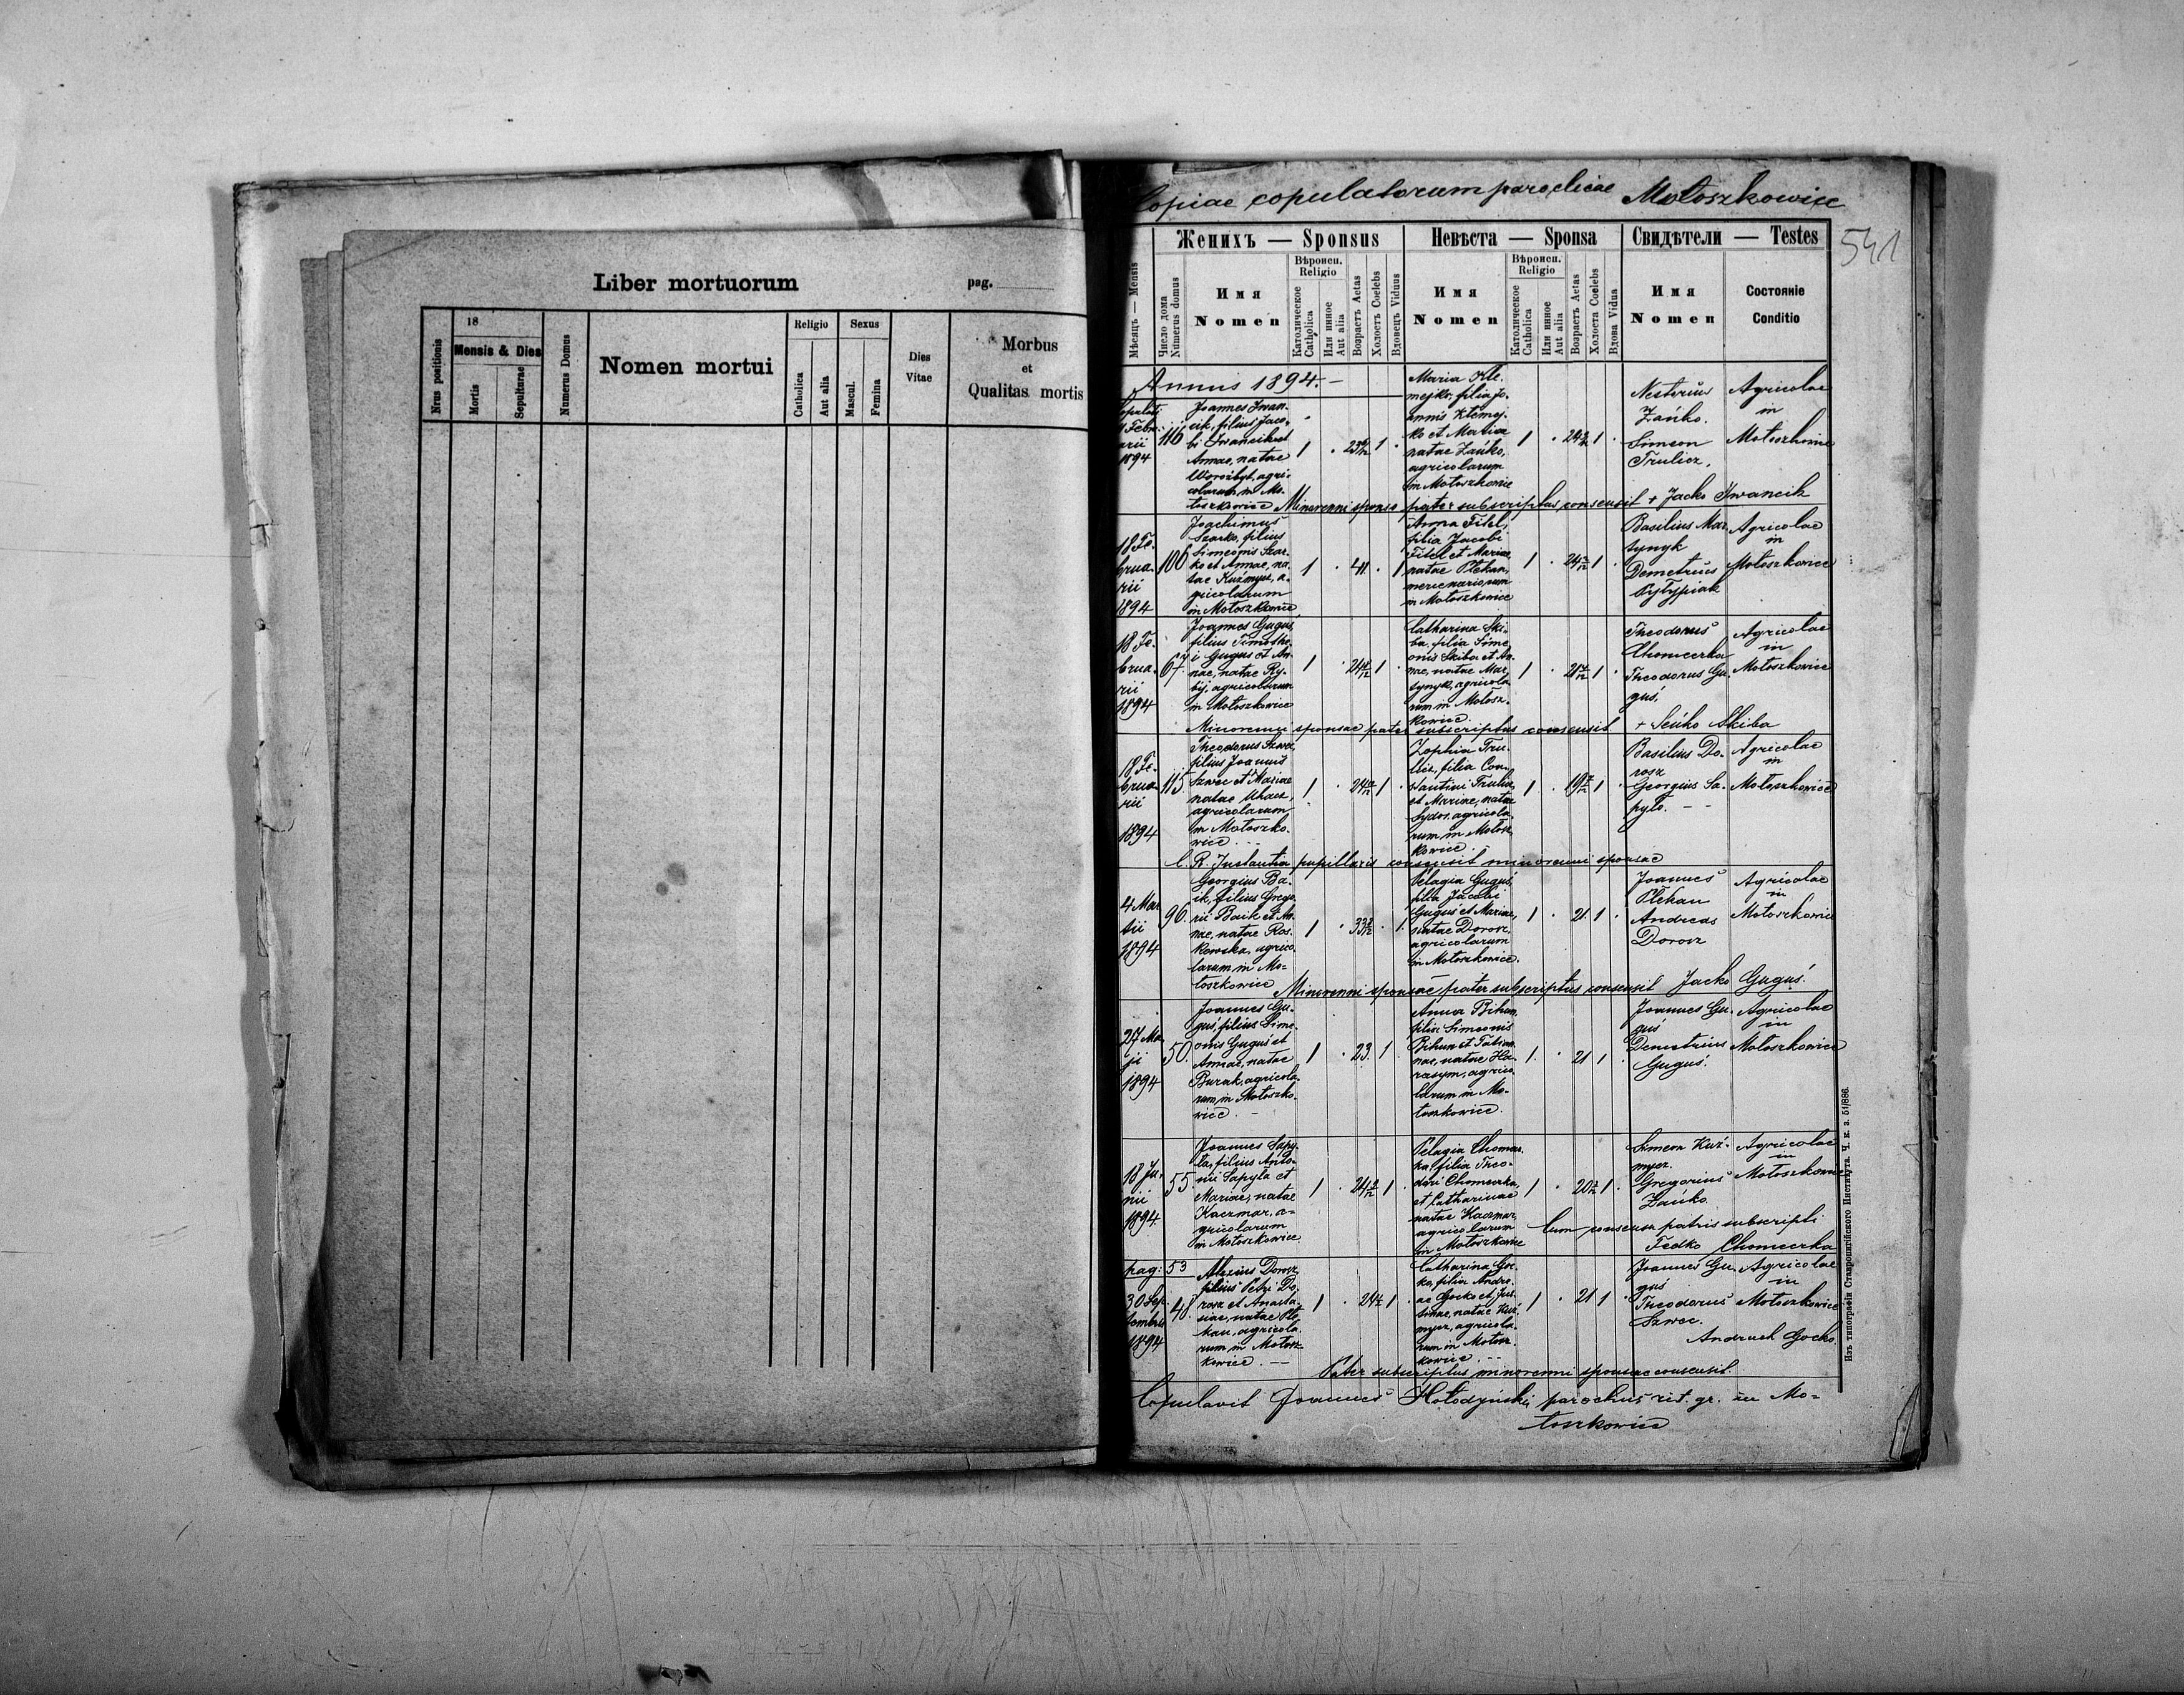 Liber mortuorum pag.
Nrus positionis
18
Mensis & Dies
Mortis
Sepulturae
Numerus Domus
Nomen mortui
Religio
Catholica
Aut alia
Sexus
Mascul.
Femina
Dies
Vitae
Morbus
et
Qualitas mortis
Copiae copulatorum parochiae Mołoszkowice
541
Мѣсяцъ — Mensis
Женихъ — Sponsus
Число дома
Numerus domus
Имя
Nomen
Вѣроисп.
Religio
Католическое
Catholica
Или иное
Aut alia
Возрастъ Aetas
Холостъ Coelebs
Вдовецъ Viduus
Невѣста — Sponsa
Имя
Nomen
Вѣроисп.
Religio
Католическое
Catholica
Или иное
Aut alia
Возрастъ Aetas
Холоста Coelebs
Вдова Vidua
Свидѣтели — Testes
Имя
Nomen
Состояніе
Conditio
Annus 1894.
1894
116
Joannes Iwan-
cik, filius Jaco-
bi Iwancik et
Annae, natae
agri-
colarum in Mo-
toszkowice
1 1
Maria Kle-
mejko, filia Jo-
annis Klemej-
ko et Mariae
natae Zańko,
agricolarum
in Motoszkowice
1 1
Nestorius
Zańko.
Simeon
Trulicz.
Agricolae
in
Motoszkowice
Minorenni sponso pater subscriptus consensit + Jacko Iwancik
18 Fe-
brua-
rii
1894
106
Joachimus
Szarko, filius
Simeonis Szar-
ko et Annae, na-
tae Kuzmycz, a-
gricolarum
in Motoszkowice
1 41 1
Anna Fitel,
filia Jacobi
Fitel et Mariae,
natae Plekan,
mercenariorum
in Motoszkowice
1 1
Basilius Mar-
tynyk
Demetrius
Agricolae
in
Motoszkowice
18 Fe-
brua-
rii
1894
67
Joannes Guguś,
filius Timothe-
i Guguś et An-
nae, natae Ry-
bij, agricolarum
in Motoszkowice
1 1
Catharina Ski-
ba, filia Sime-
onis Skiba et An-
nae, natae Mar-
tynyk, agricola-
rum in Motosz-
kowice
1 1
Theodorus
Chomeczka
Theodorus Gu-
guś,
Agricolae
in
Motoszkowice
Minorenni sponsae pater subscriptus consensit. + Seńko Skiba
18 Fe-
brua-
rii
1894
115
Theodorus Szwec,
filius Joannis
Szwec et Mariae
natae Uhacz,
agricolarum
in Motoszko-
wice
1 1
Zophia Tru-
licz, filia Con-
stantini Trulicz
et Mariae, natae
Sydor, agricola-
rum in Motosz-
kowice
1 1
Basilius Do-
rosz
Georgius Sa-
pyło.
Agricolae
in
Motoszkowice
C. R. Instantia pupillaris consensit minorenni sponsae
4 Mar-
tii
1894
96.
Georgius Ba-
ik, filius Grego-
rii Baik et An-
nae, natae Ros-
kowska, agrico-
larum in Mo-
toszkowice
1 1
Pelagia Guguś,
filia Jacobi
Guguś et Mariae,
natae Dorosz,
agricolarum
in Motoszkowice.
1 21. 1
Joannes
Plekan
Andreas
Dorosz
Agricolae
in
Motoszkowice
Minorenni sponsae pater subscriptus consensit Jacko Guguś.
27 Ma-
ji
1894
50.
Joannes Gu-
guś, filius Sime-
onis Guguś et
Annae, natae
Burak, agricola-
rum in Motoszko-
wice.
1 23. 1
Anna Bihun,
filia Simeonis
Bihun et Tatian-
nae, natae Ha-
rasym, agrico-
larum in Mo-
toszkowice.
1. 21 1
Joannes Gu-
guś
Demetrius
Guguś.
Agricolae
in
Motoszkowice
18 Ju-
nii
1894
55
Joannes Sapy-
ła, filius Anto-
nii Sapyła et
Mariae, natae
Kaczmar, a-
gricolarum
in Motoszkowice
1 1
Pelagia Chomecz-
ka, filia Theo-
dori Chomeczka,
et Catharinae
natae Kaczmar,
agricolarum
in Motoszkowice
1 1
Simeon Kuź-
mycz.
Gregorius
Zańko.
Agricolae
in
Motoszkowice
Cum consensu patris subscripti
Fedko Chomeczka
pag: 53
30 Sep-
tembris
1894
48.
Alexius Dorosz,
filius Petri Do-
rosz et Anasta-
siae, natae Ple-
kan, agricola-
rum in Motosz-
kowice.
1 1
Catharina Goc-
ko, filia Andre-
ae Gocko et Jus-
tinae, natae Kuź-
mycz, agricola-
rum in Motosz-
kowice
1 21 1
Joannes Gu-
guś
Theodorus
Szwec.
Agricolae
in
Motoszkowice
Andruch Gocko.
Pater subscriptus minorenni sponsae consensit.
Copulavit Joannes Hołodyński, parochus rit. gr. in Mo-
toszkowice
Изъ типографіи Ставропигійского Института. Ч. к. з. 51/886.